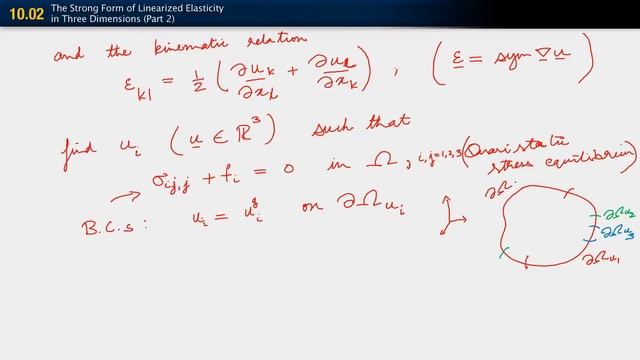 10.02
The Strong Form of Linearized Elasticity
in Three Dimensions (Part 2)
and the kinematic relation
ε_{kl} = 1/2 (∂u_k/∂x_l + ∂u_l/∂x_k), (ε = sym ∇u)
find u_i (u ∈ ℝ³) such that
σ_{ij,j} + f_i = 0 in Ω, i,j=1,2,3 (Quasistatic stress equilibrium)
B.C.s: u_i = u_i^g on ∂Ω_{u_i}
∂Ω:
∂Ω_{u_2}
∂Ω_{u_3}
∂Ω_{u_1}